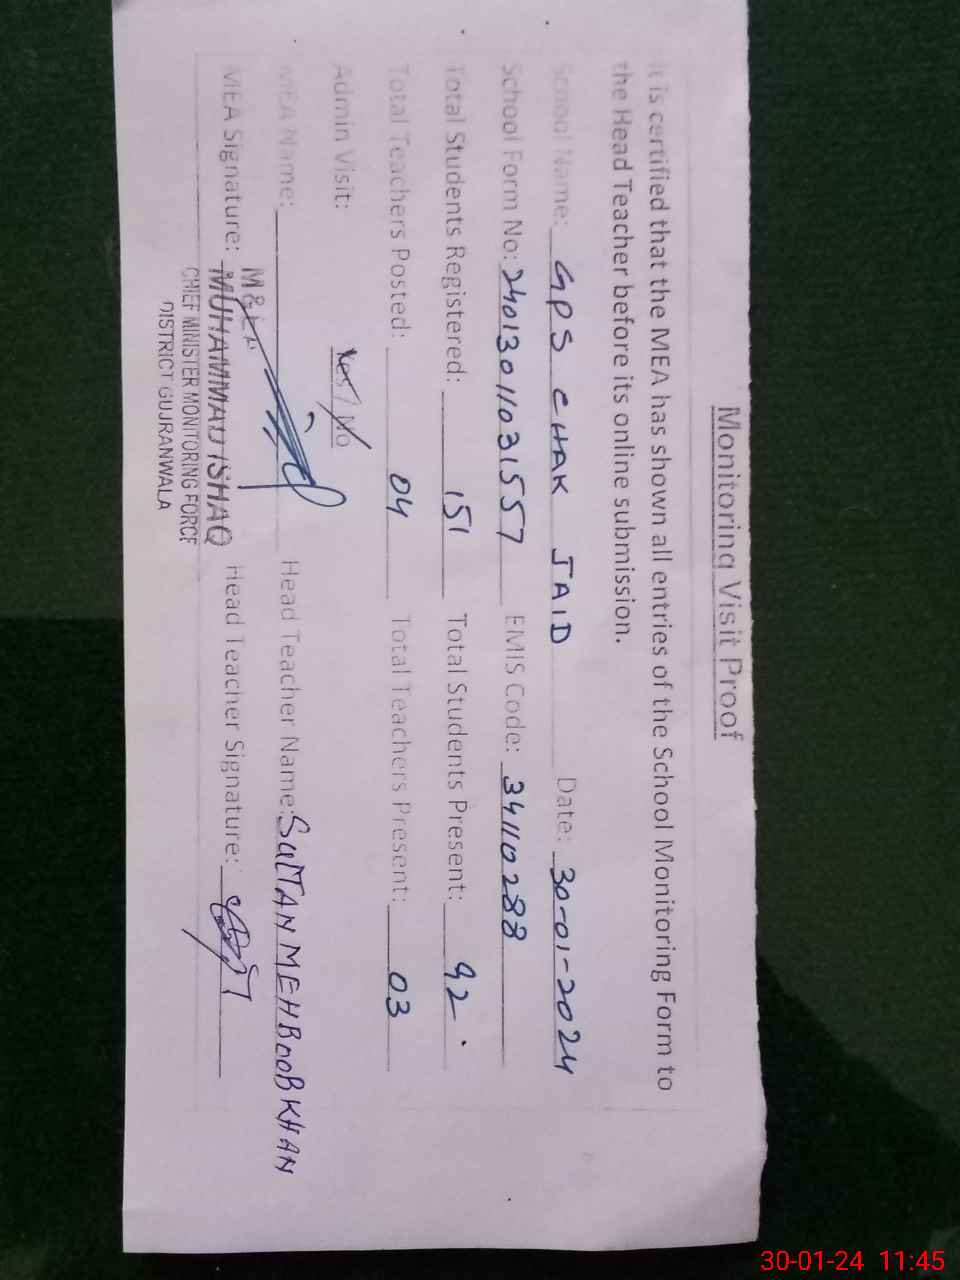 Monitoring Visit Proof
It is certified that the MEA has shown all entries of the School Monitoring Form to
the Head Teacher before its online submission.
School Name: GPS CHAK JAID Date: 30-01-2024
School Form No: 24013011031557 EMIS Code: 34110288
Total Students Registered: 151 Total Students Present: 92
Total Teachers Posted: 04 Total Teachers Present: 03
Admin Visit: Yes / No
MEA Name: Head Teacher Name: SULTAN MEHBOOB KHAN
MEA Signature: Head Teacher Signature:
MUHAMMAD ISHAQ
CHIEF MINISTER MONITORING FORCE
DISTRICT GUJRANWALA
30-01-24 11:45